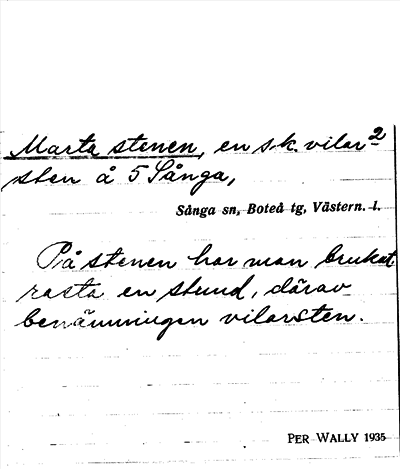 Marta stenen, en s.k. vilar²-
sten å 5 Sånga,
Sånga sn, Boteå tg, Västern. l.
På stenen har man brukat
rasta en stund, därav
benämningen vilarsten.
PER WALLY 1935